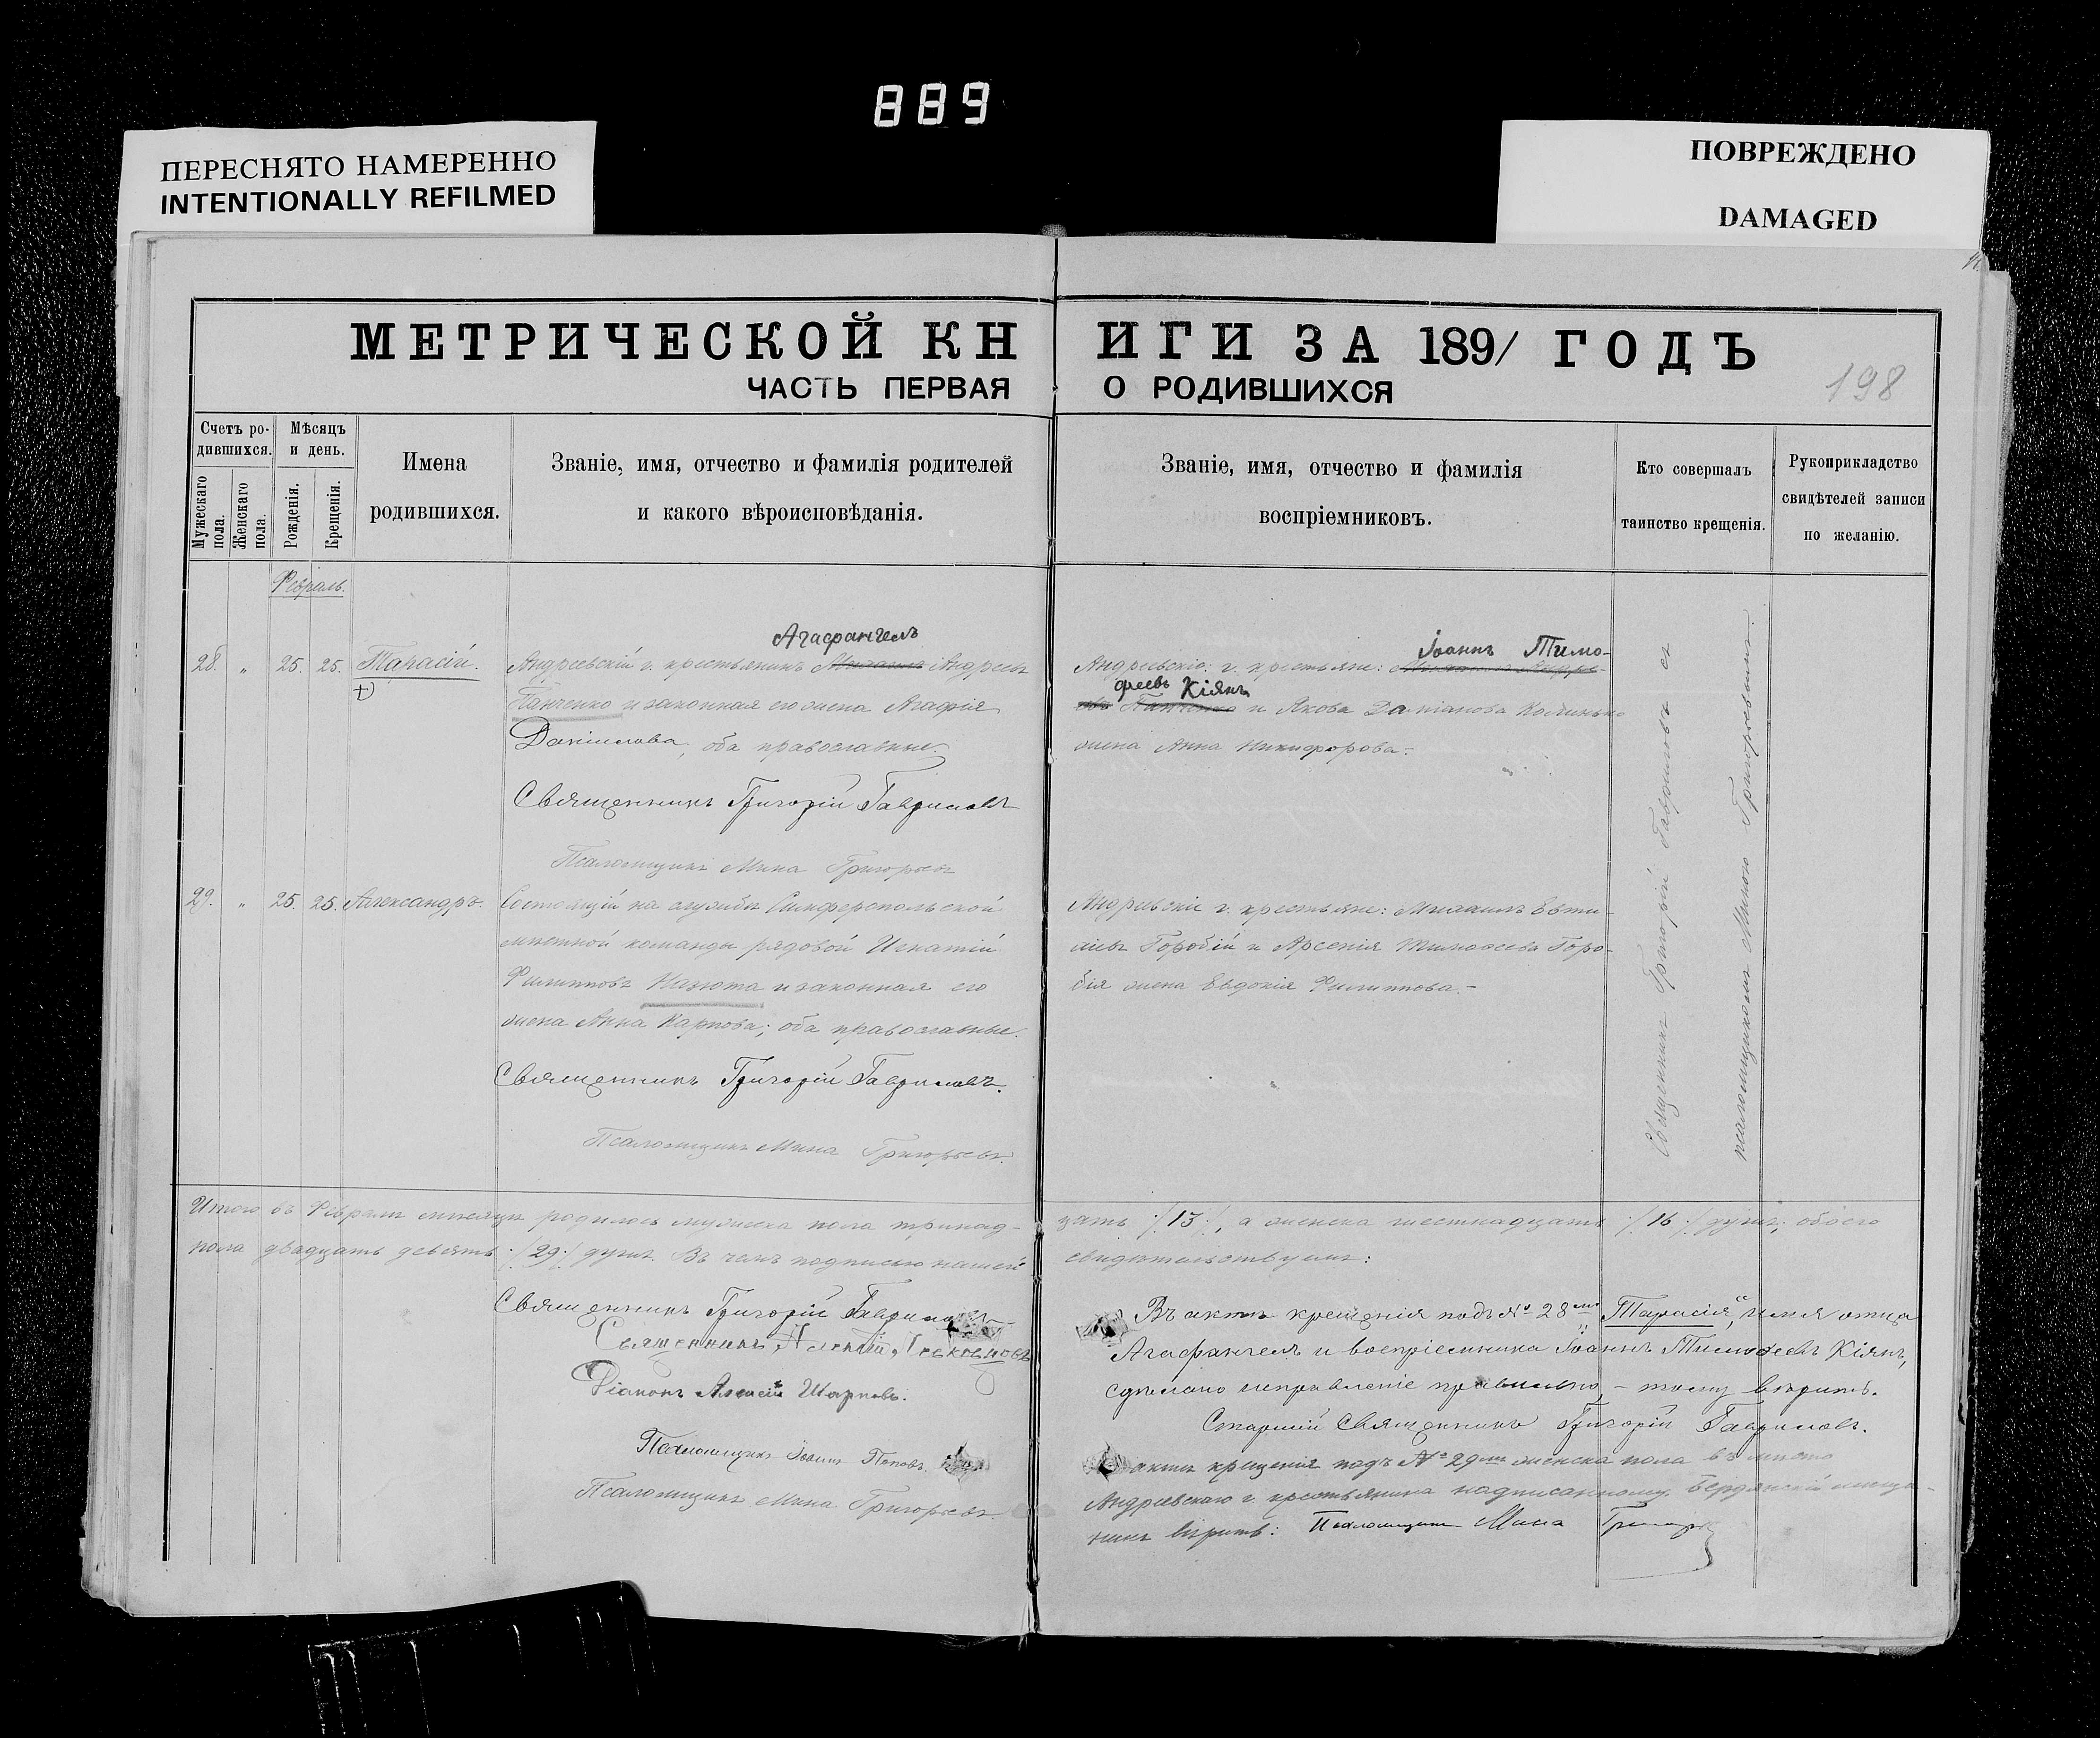 889
ПЕРЕСНЯТО НАМЕРЕННО
INTENTIONALLY REFILMED
ПОВРЕЖДЕНО
DAMAGED
МЕТРИЧЕСКОЙ КНИГИ ЗА 1891 ГОДЪ
ЧАСТЬ ПЕРВАЯ О РОДИВШИХСЯ
198
Счетъ ро-
дившихся.
Мужескаго пола.
Женскаго пола.
Мѣсяцъ
и день.
Рожденія.
Крещенія.
Имена
родившихся.
Званіе, имя, отчество и фамилія родителей
и какого вѣроисповѣданія.
Званіе, имя, отчество и фамилія
воспріемниковъ.
Кто совершалъ
таинство крещенія.
Рукоприкладство
свидѣтелей записи
по желанію.
Февраль.
28. " 25. 25. Тарасій.
Агафангелъ
Андреевскій г. крестьянинъ Михаилъ Андреевъ
Панченко и законная его жена Агафія
Даніилова, оба православные.
Священникъ Григорій Гавриловъ
Псаломщикъ Мина Григорьевъ
Іоаннъ Тимо-
Андреевскіе г. крестьяне:
феевъ Кіянъ
Панченко и Якова Даміанова
жена Анна Никифорова.
29. " 25. 25. Александръ.
Состоящій на службѣ Симферопольской
мѣстной команды рядовой Игнатій
Филипповъ и законная его
жена Анна Карпова; оба православные.
Священникъ Григорій Гавриловъ.
Псаломщикъ Мина Григорьевъ.
Андреевскіе г. крестьяне: Михаилъ Евти-
міевъ Горобій и Арсенія Тимофеева Горо-
бія жена Евдокія Филиппова.
Священникъ Григорій Гавриловъ съ
псаломщикомъ Миною Григорьевымъ.
Итого въ Февралѣ мѣсяцѣ родилось мужеска пола тринад-
цать /13/, а женска шестнадцать /16/ душъ, обоего
пола двадцать девять /29/ душъ. Въ чемъ подписью нашей
свидѣтельствуемъ:
Священникъ Григорій Гавриловъ
Священникъ
Діаконъ Алексій
Псаломщикъ Іоаннъ Поповъ.
Псаломщикъ Мина Григорьевъ
Въ актѣ крещенія подъ № 28мъ „Тарасія“, имя отца
Агафангелъ и воспріемника Іоаннъ Тимофеевъ Кіянъ,
сдѣлано исправленіе правильно, – тому вѣрить.
Старшій Священникъ Григорій Гавриловъ.
актѣ крещенія подъ № 29мъ женска пола вмѣсто
Андреевскаго г. крестьянина надписанному Бердянскій мѣща-
нинъ вѣрить: Псаломщикъ Мина